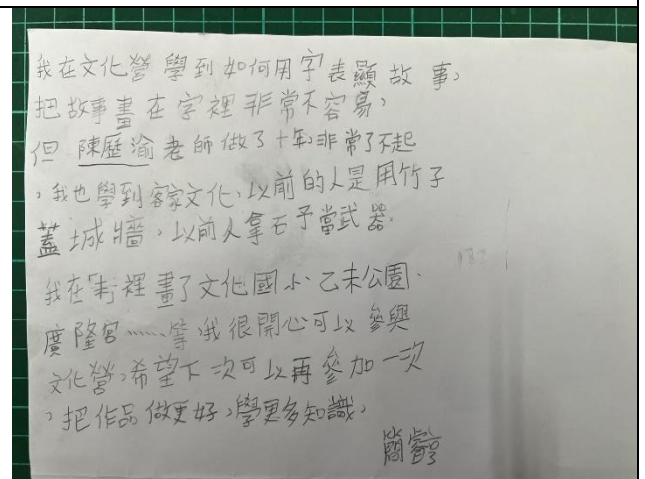 我在文化營學到如何用字表顯故事，
把故事畫在字裡非常不容易，
但陳歷渝老師做了十年，非常了不起
，我也學到客家文化，以前的人是用竹子
蓋城牆，以前人拿石子當武器。
我在「朱」裡畫了文化國小、乙未公園、
廣隆宮……等，我很開心可以參與
文化營，希望下次可以再參加一次
，把作品做更好，學更多知識，
簡睿